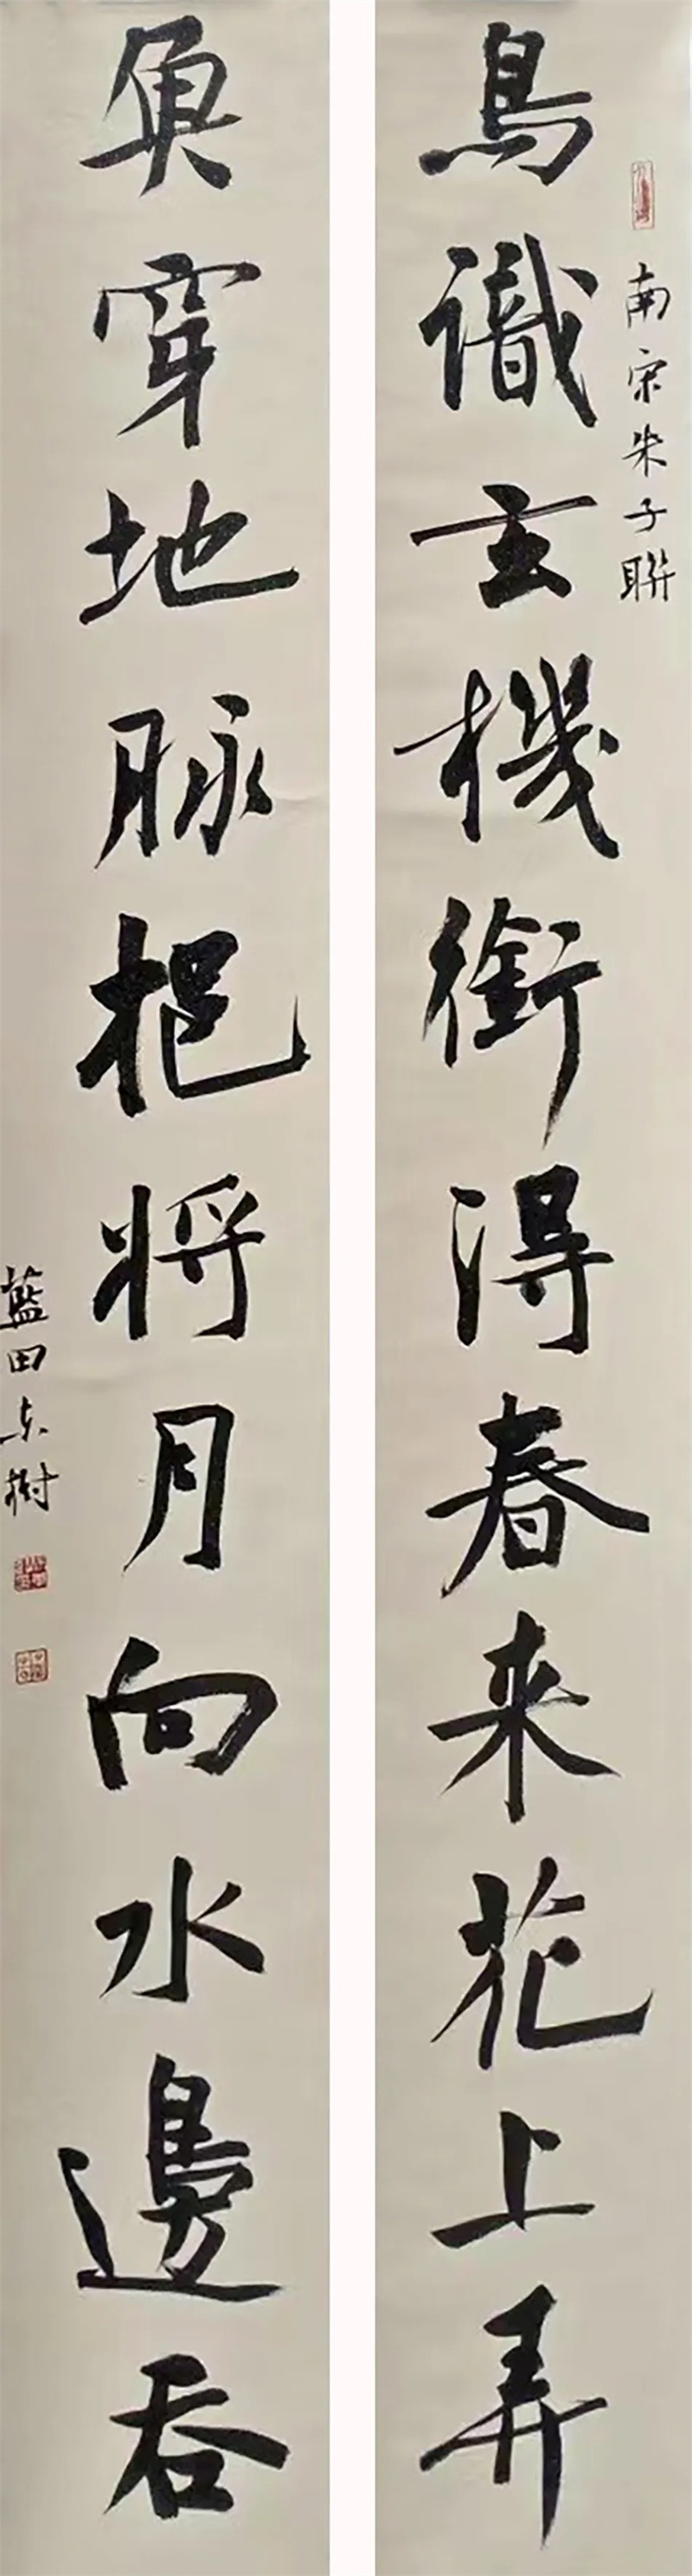 南宋朱子聯
鳥識玄機銜得春来花上弄
魚穿地脉挹將月向水邊吞
藍田東樹